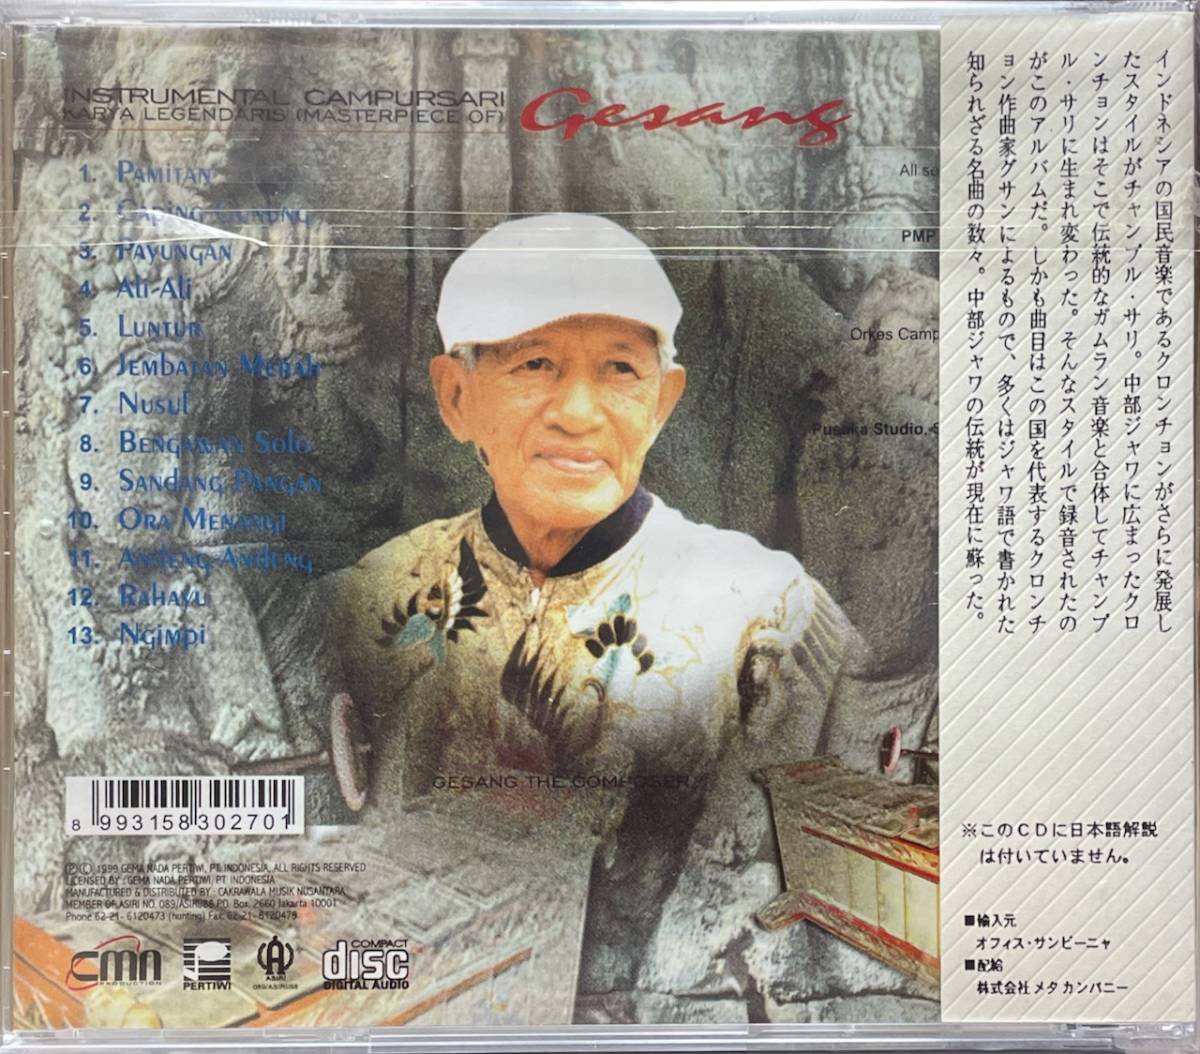 INSTRUMENTAL CAMPURSARI
KARYA LEGENDARIS (MASTERPIECE OF)
Gesang
1. Pamitan
2. Caping Gunung
3. Payungan
4. Ali-Ali
5. Luntur
6. Jembatan Merah
7. Nusul
8. Bengawan Solo
9. Sandang Pangan
10. Ora Menangi
11. Andeng-Andeng
12. Rahayu
13. Ngimpi
All so
PMP
Orkes Camp
Pusaka Studio, S
GESANG THE COMPOSER
8 993158 302701
℗© 1999 GEMA NADA PERTIWI, PT. INDONESIA, ALL RIGHTS RESERVED
LICENSED BY : GEMA NADA PERTIWI, PT. INDONESIA
MANUFACTURED & DISTRIBUTED BY : CAKRAWALA MUSIK NUSANTARA
MEMBER OF ASIRI NO. 089/ASIRI/88 P.O. Box. 2660 Jakarta 10001
Phone 62-21- 6120473 (hunting) Fax. 62-21- 6120479
CMN
PRODUCTION
PERTIWI
ASIRI
089/ASIRI/88
COMPACT
disc
DIGITAL AUDIO
インドネシアの国民音楽であるクロンチョンがさらに発展し
たスタイルがチャンプル・サリ。中部ジャワに広まったクロ
ンチョンはそこで伝統的なガムラン音楽と合体してチャンプ
ル・サリに生まれ変わった。そんなスタイルで録音されたの
がこのアルバムだ。しかも曲目はこの国を代表するクロンチ
ョン作曲家グサンによるもので、多くはジャワ語で書かれた
知られざる名曲の数々。中部ジャワの伝統が現在に蘇った。
※このCDに日本語解説
は付いていません。
■輸入元
オフィス・サンビーニャ
■配給
株式会社メタ カンパニー